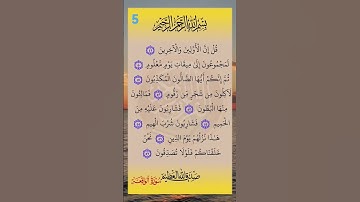 5
بسم الله الرحمن الرحيم
قُلْ إِنَّ الْأَوَّلِينَ وَالْآخِرِينَ
لَمَجْمُوعُونَ إِلَىٰ مِيقَاتِ يَوْمٍ مَعْلُومٍ
ثُمَّ إِنَّكُمْ أَيُّهَا الضَّالُّونَ الْمُكَذِّبُونَ
لَآكِلُونَ مِنْ شَجَرٍ مِنْ زَقُّومٍ فَمَالِئُونَ
مِنْهَا الْبُطُونَ فَشَارِبُونَ عَلَيْهِ مِنَ
الْحَمِيمِ فَشَارِبُونَ شُرْبَ الْهِيمِ
هَٰذَا نُزُلُهُمْ يَوْمَ الدِّينِ نَحْنُ
خَلَقْنَاكُمْ فَلَوْلَا تُصَدِّقُونَ
صدق الله العظيم
سورة الواقعة